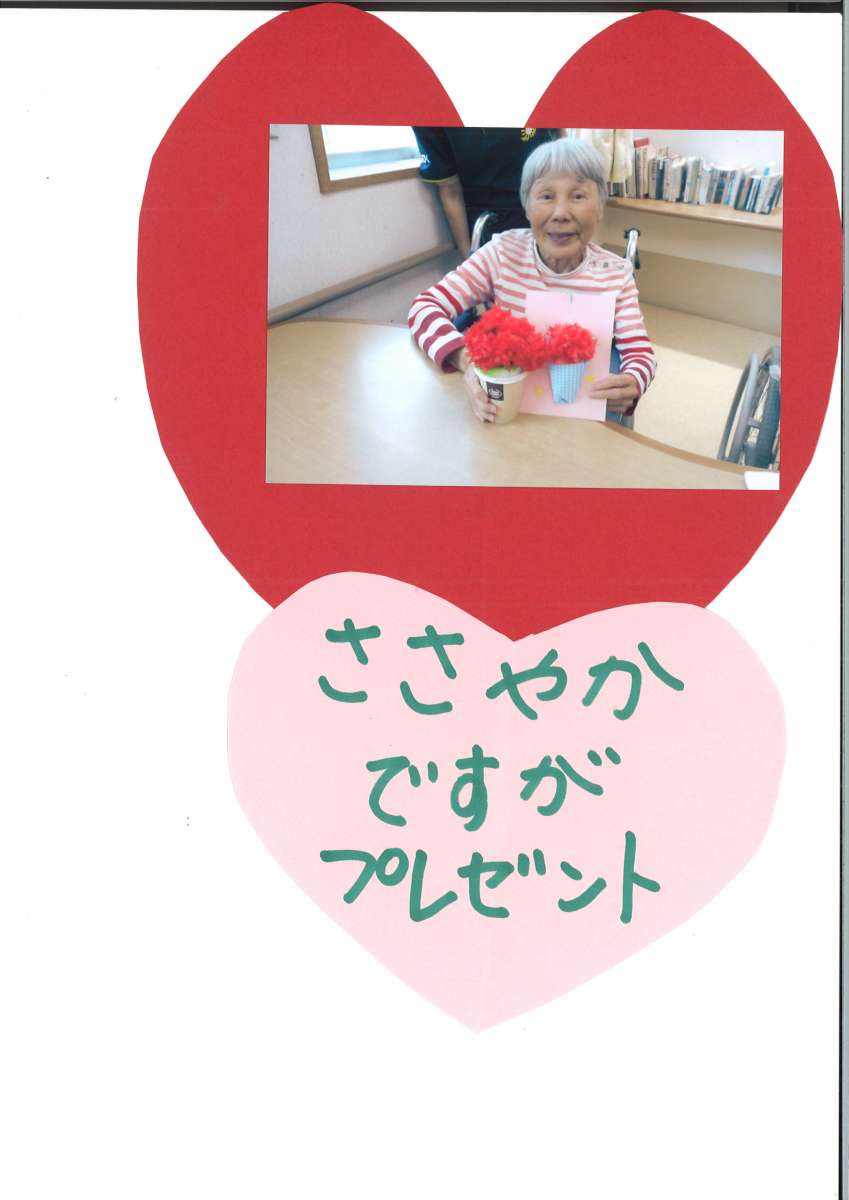 ささやか
ですが
プレゼント